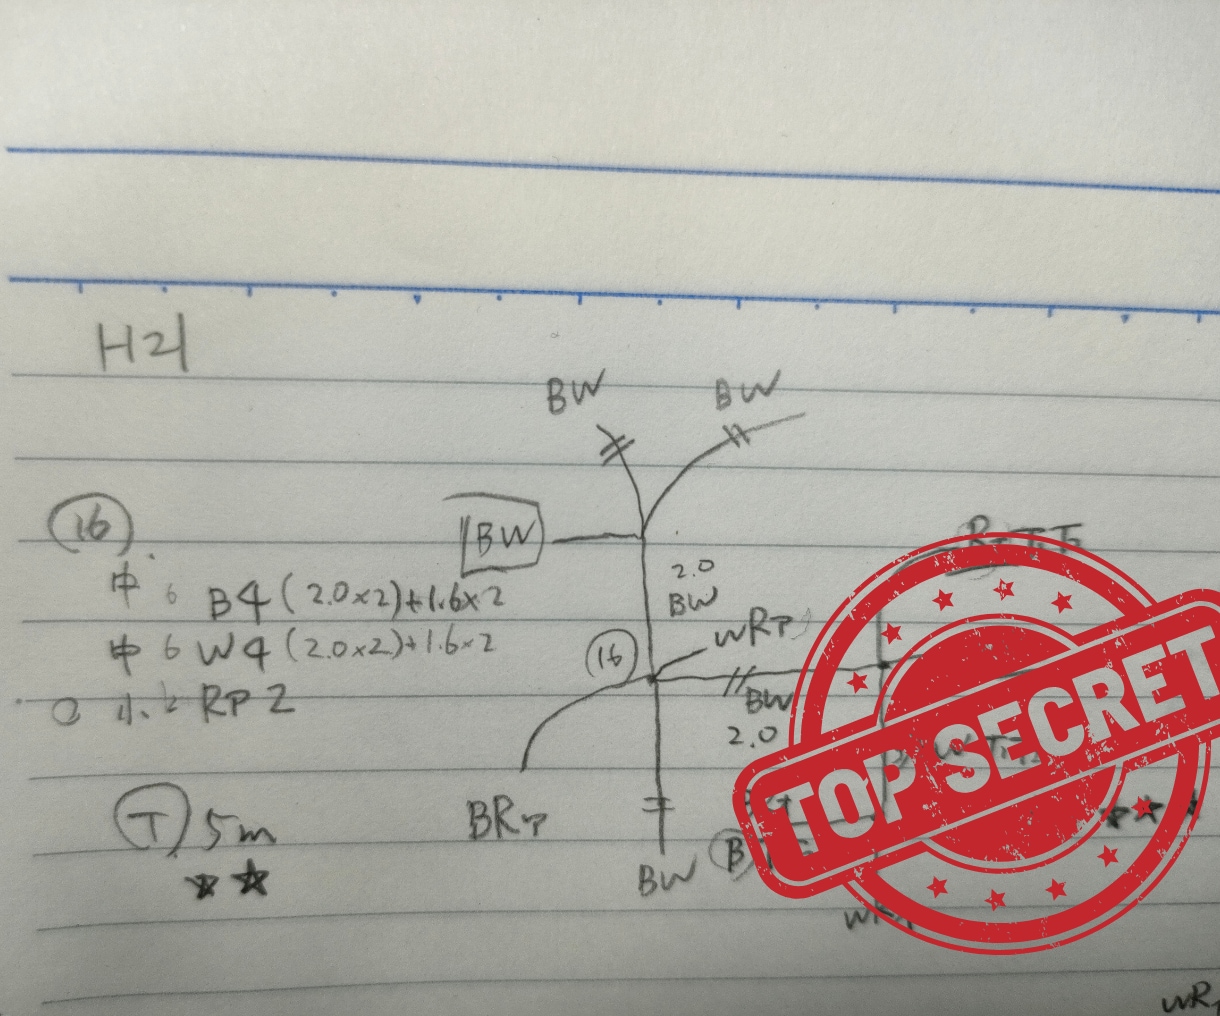 H21
BW
BW
16
BW
2.0
BW
中 6 B4(2.0×2)+1.6×2
中 6 W4(2.0×2)+1.6×2
16
WRP
小. RP2
BW
2.0
T 5m
BRP
BW
B
TOP SECRET